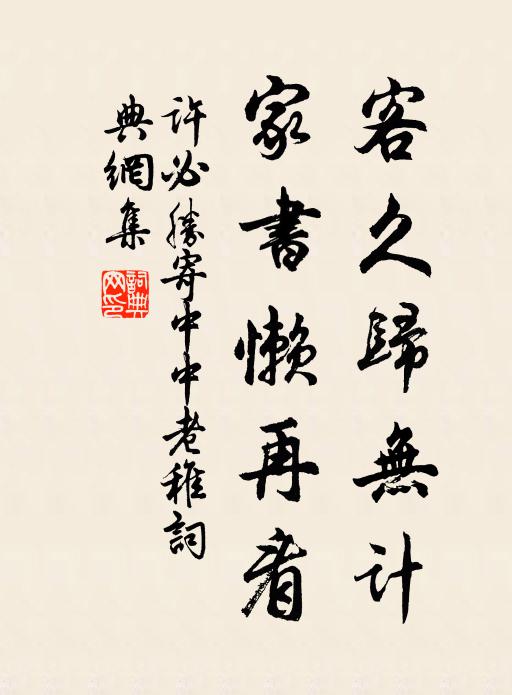 客久歸無計
家書懶再看
許必勝寄中中老稚詞
典網集
詞典網印